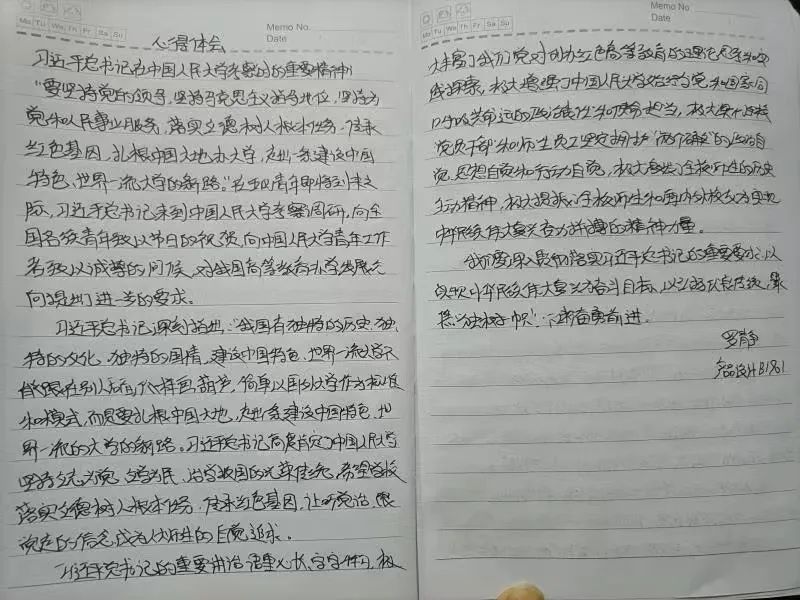 Memo No.
Mo Tu We Th Fr Sa Su
Date
心得体会
习近平总书记在中国人民大学考察时的重要精神
"要坚持党的领导,坚持马克思主义指导地位,坚持为
党和人民事业服务,落实立德树人根本任务,传承
红色基因,扎根中国大地办大学,走出一条建设中国
特色、世界一流大学的新路。"在五四青年节到来之
际,习近平总书记来到中国人民大学考察调研,向全
国各族青年致以节日的祝贺,向中国人民大学青年工作
者致以诚挚的问候,对我国高等教育办学发展方
向提出了进一步的要求。
习近平总书记深刻指出:"我国有独特的历史、独
特的文化、独特的国情,建设中国特色、世界一流大学不
能跟在别人后面依样画葫芦,简单以国外大学作为标准
和模式,而是要扎根中国大地,走出一条建设中国特色、世
界一流的大学的新路。习近平总书记高度肯定了中国人民大学
坚持立学为党、立学为民、治学报国的光荣传统,希望学校
落实立德树人根本任务,传承红色基因,让听党话、跟
党走的信念成为大师生的自觉追求。
习近平总书记的重要讲话语重心长,字字体切,极
Memo No.
Mo Tu We Th Fr Sa Su
Date
大丰富了我们党对创办红色高等教育的理论思考和实
践探索,极大增强了中国人民大学始终与党和国家同
呼吸共命运的政治责任和使命担当,极大坚定
党员干部和师生员工坚定拥护"两个确立"的政治自
觉、思想自觉和行动自觉,极大激发了全校师生的历史
主动精神,极大提振了全校师生和海内外校友为实现
中华民族伟大复兴奋力拼搏的精神力量。
我们要深入贯彻落实习近平总书记的重要要求,以
实现中华民族伟大复兴为奋斗目标,
"独树一帜",
奋勇前进。
罗静
B1961